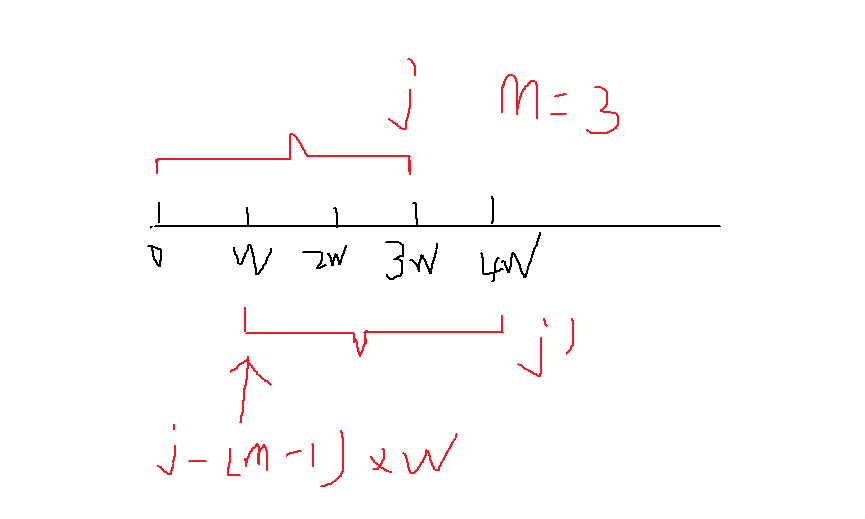 j m = 3
0 w 2w 3w 4w
j'
j - (m - 1) x w